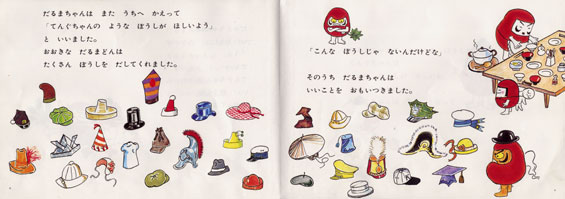 だるまちゃんは また うちへ かえって
「てんぐちゃんの ような ぼうしが ほしいよう」
と いいました。
おおきな だるまどんは
たくさん ぼうしを だしてくれました。
「こんな ぼうしじゃ ないんだけどな」
そのうち だるまちゃんは
いいことを おもいつきました。